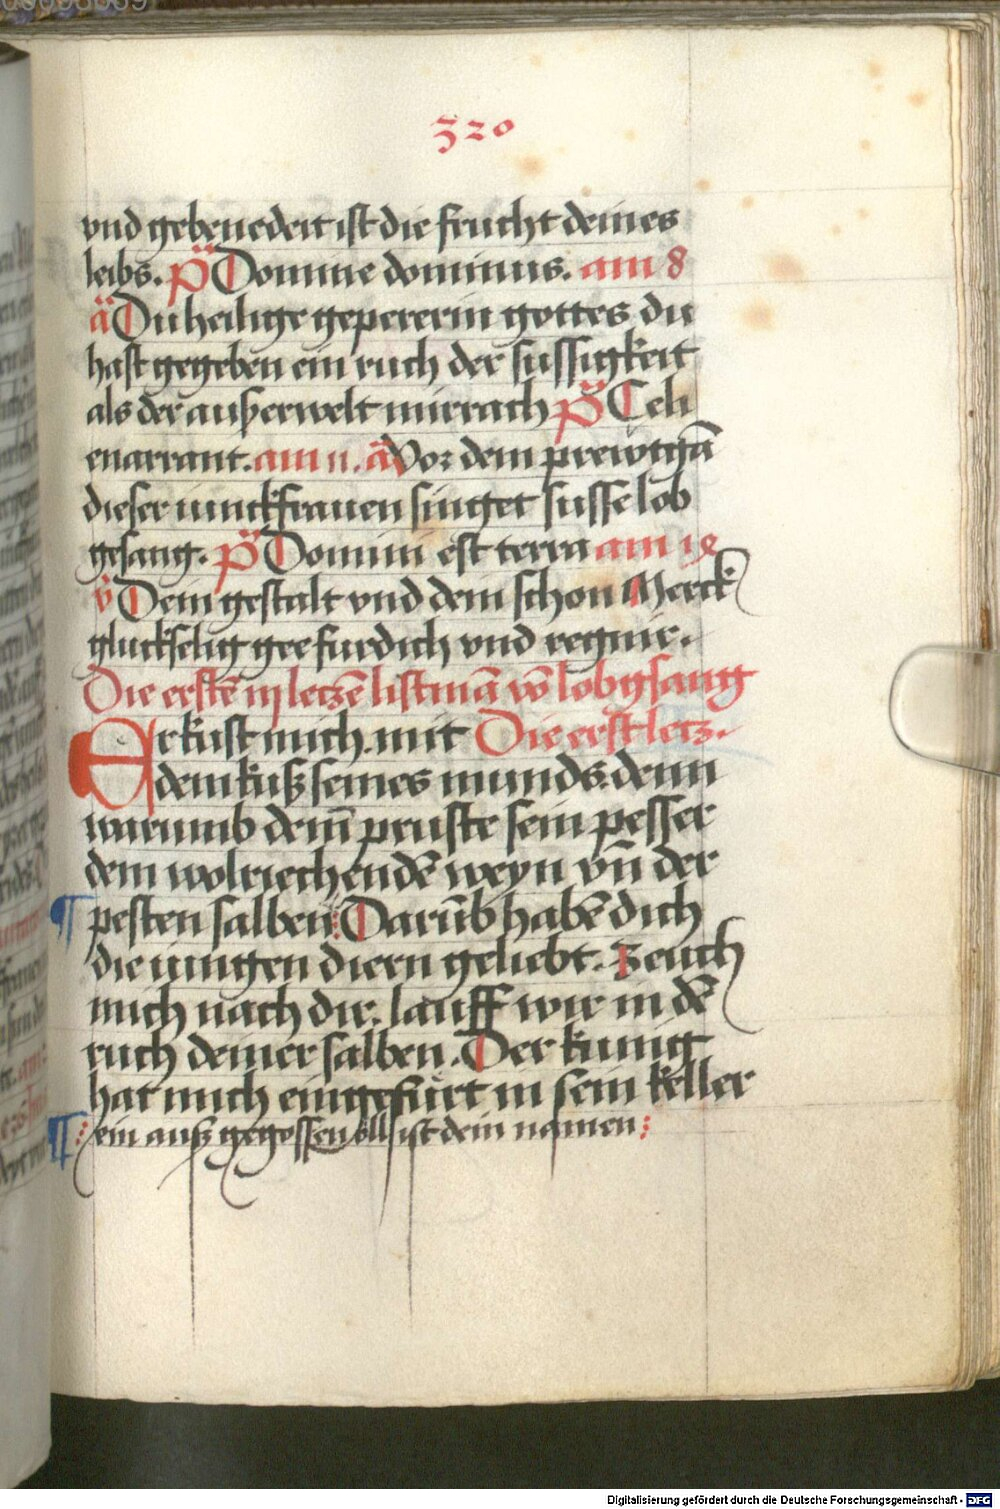 320
vnd gebenedeit ist die frucht deines
leibs. p̄s Domine dominus. am 8
ā Du heilige gepererin gottes du
hast gegeben ein ruch der sussigkeit
als der auszerwelt mirrach p̄s Celi
enarrant. am 11. ā Vor dem prewtgā
dieser iunckfrauen singet susse lob
gesang. p̄s Domini est terra am 18
v̄ Dein gestalt vnd dein schon Merck
gluckselig gee furdich vnd regnir.
Die erstē iij letzē list mā vō lobgsang
Er kust mich mit Die erst letz.
dem kusz seines munds. denn
warumb deiñ pruste sein pesser
dem wolriechendē weyn vñ der
pesten salben: Darūb habē dich
die iungen diern geliebt. Zeuch
mich nach dir. lauff wir in dē
ruch deiner salben. Der kunig
hat mich eingefürt in sein keller
: ein ausz gegossen öll ist dein namen :
Digitalisierung gefördert durch die Deutsche Forschungsgemeinschaft - DFG